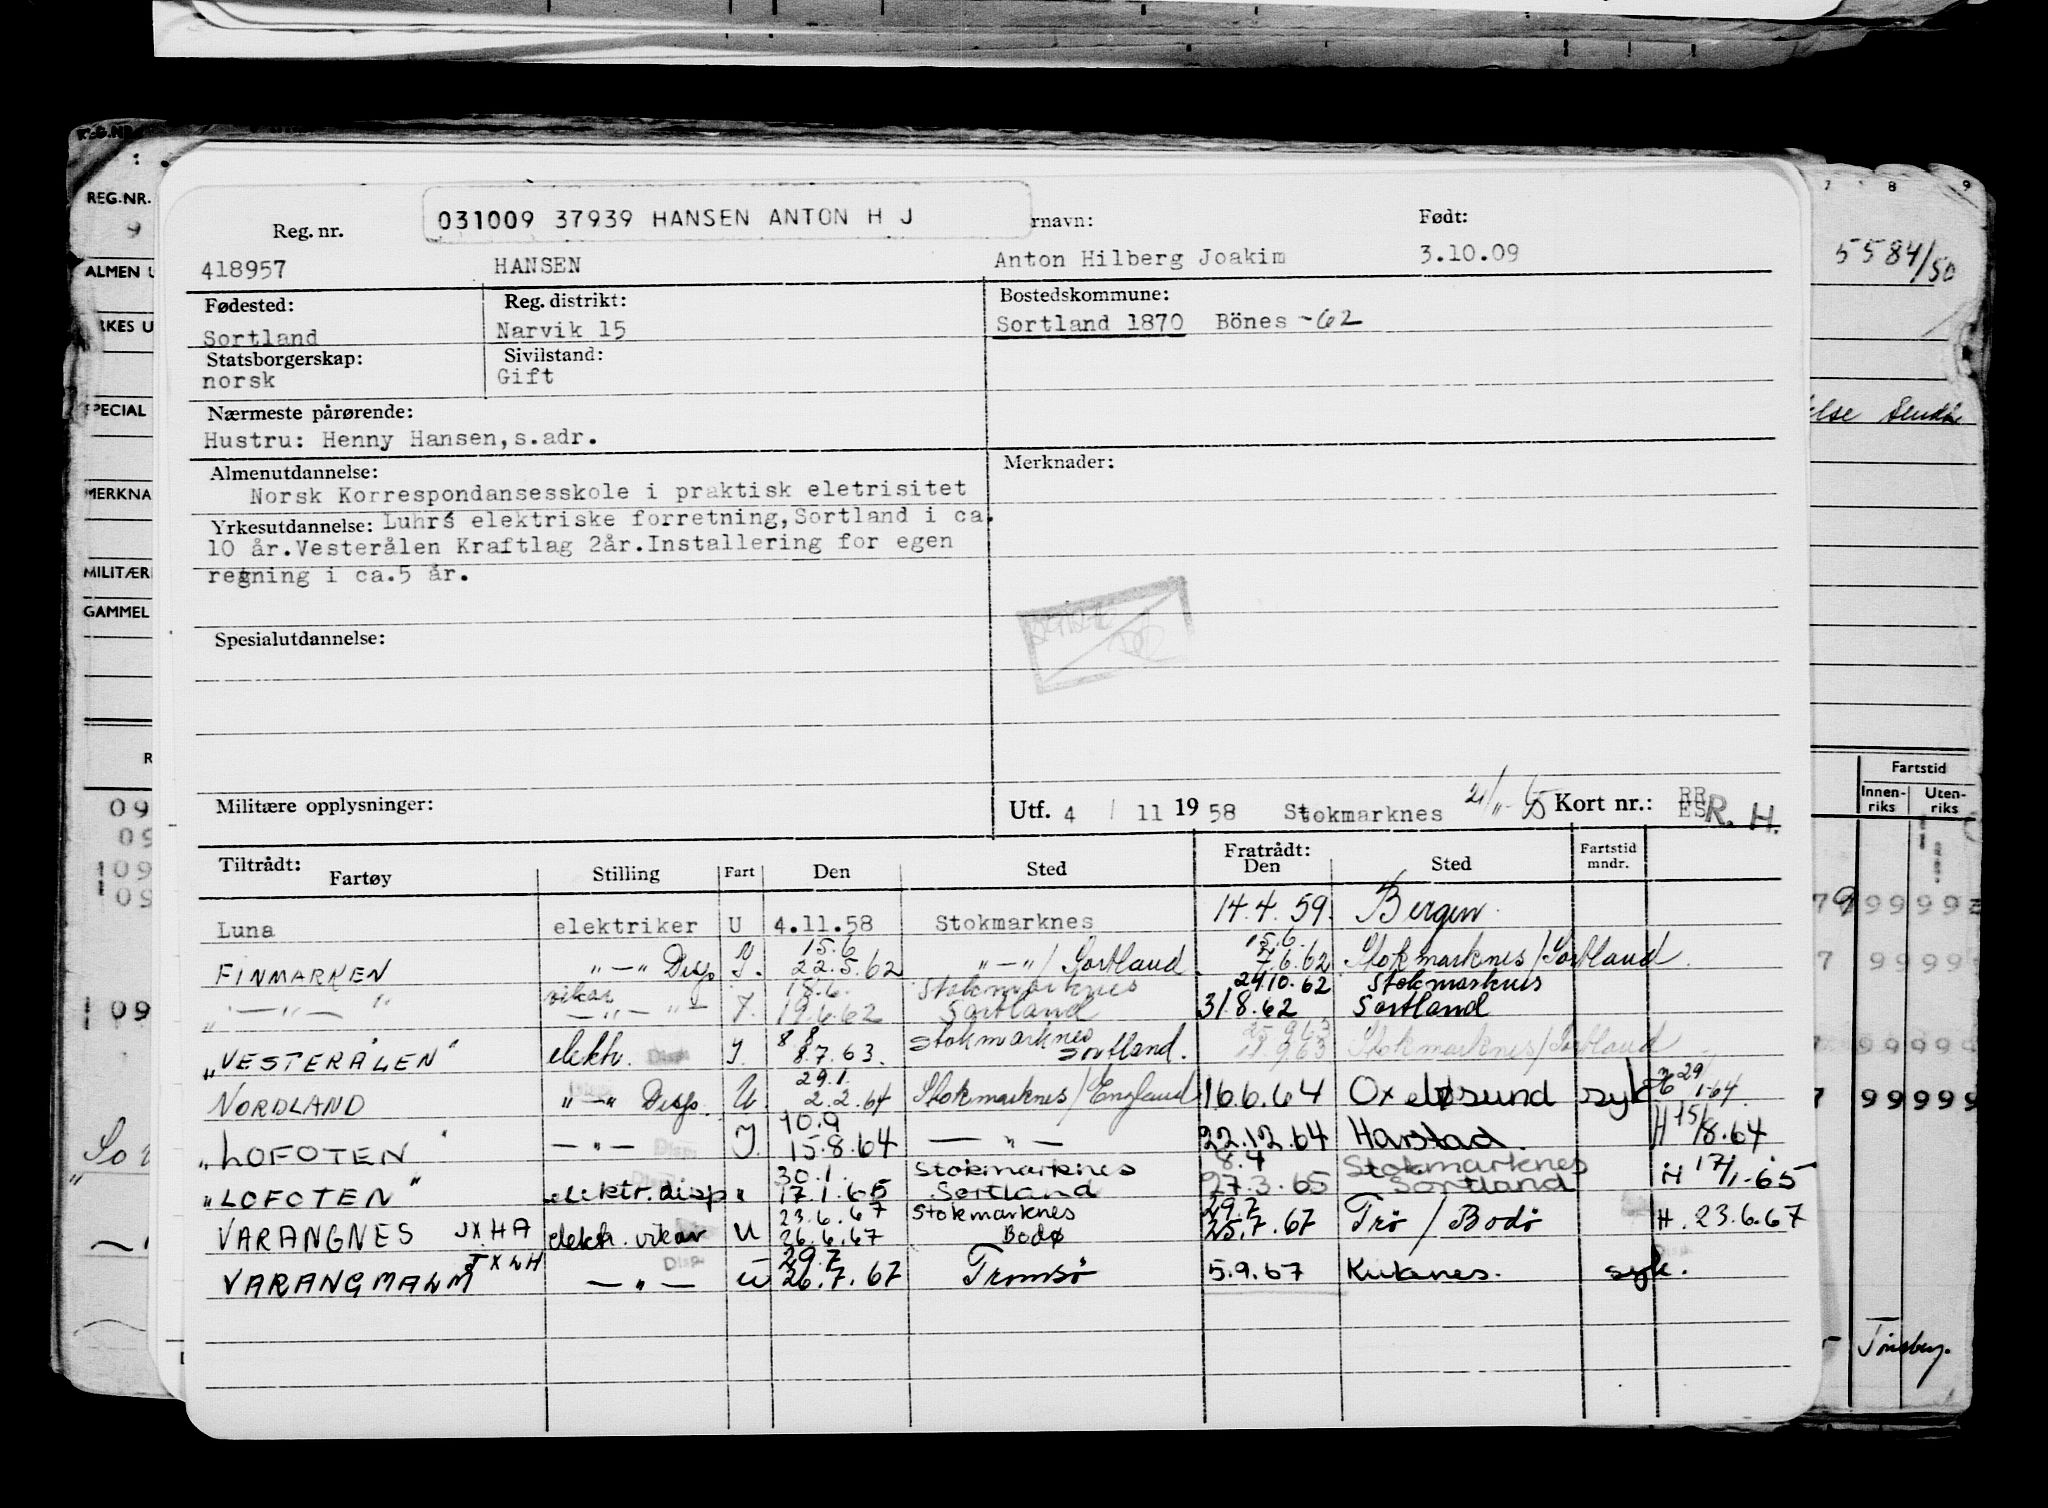 031009 37939 HANSEN ANTON H J
Reg. nr. rnavn: Født:
418957 HANSEN Anton Hilberg Joakim 3.10.09
Fødested: Reg. distrikt: Bostedskommune:
Sortland Narvik 15 Sortland 1870 Bönes -62
Statsborgerskap: Sivilstand:
norsk Gift
Nærmeste pårørende:
Hustru: Henny Hansen,s.adr.
Almenutdannelse: Merknader:
Norsk Korrespondansesskole i praktisk eletrisitet
Yrkesutdannelse: Luhrs elektriske forretning,Sortland i ca.
10 år.Vesterålen Kraftlag 2år.Installering for egen
regning i ca.5 år.
Spesialutdannelse:
Militære opplysninger: Utf. 4 / 11 1958 Stokmarknes Kort nr.: R. H.
Tiltrådt: Fratrådt: Fartstid
Fartøy Stilling Fart Den Sted Den Sted mndr.
Luna elektriker U 4.11.58 Stokmarknes 14.4.59. Bergen
15.6 15.6.
FINMARKEN " — " Disp. I. 22.5.62 " — " / Sortland 7.6.62 Stokmarknes/Sortland
vikar 18.6. Stokmarknes 24.10.62 Stokmarknes
" — " — " — " — " — I. 19.6.62 Sortland 31.8.62 Sortland
8.8 Stokmarknes 25.9.63
"VESTERÅLEN" elektr. Disp I. 8.7.63. Sortland. Stokmarknes/Sortland
29.1. 29
NORDLAND " — " Disp. U. 2.2.64 Stokmarknes/England 16.6.64 Oxeløsund syk 1-64.
10.9
"LOFOTEN" — " — Disp I. 15.8.64 — " — 22.12.64 Harstad. H 15/8.64
30.1. Stokmarknes 8.4 Stokmarknes
"LOFOTEN" elektr.disp " 17.1.65 Sortland 27.3.65 Sortland H 17/1-65
23.6.67 Stokmarknes 29.7
VARANGNES JXHA elektr. vikar U 26.6.67 Bodø 25.7.67 Trø / Bodø H. 23.6.67
JXLH Disp 29.7
VARANGMALM — " — U 26.7.67 Tromsø 5.9.67 Kirkenes. syk.
REG.NR.
9
ALMEN U
RKES U
SPECIAL
MERKNA
MILITÆR
GAMMEL
R
09
09
109
109
109
7 8 9
5584/50
else
Fartstid
Innen-
riks
Uten-
riks
79 99 999
7 99 99
99 999
7 99 999
Tønsberg.